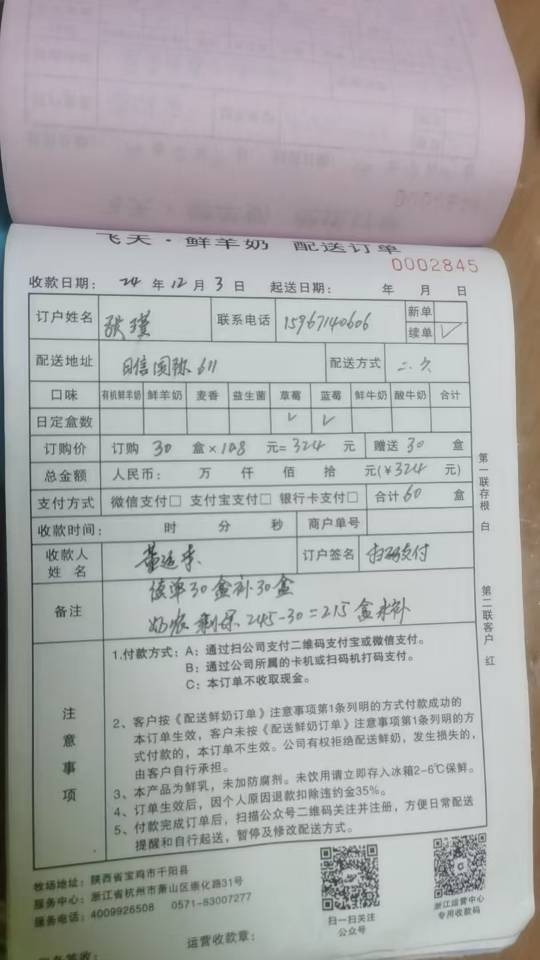 飞天·鲜羊奶 配送订单
0002845
收款日期: 24 年 12 月 3 日 起送日期: 年 月 日
订户姓名 张瑾 联系电话 15967140606 新单
续单 ✓
配送地址 日信国际611 配送方式 二.六
口味 有机鲜羊奶 鲜羊奶 麦香 益生菌 草莓 蓝莓 鲜牛奶 酸牛奶 合计
日定盒数 ✓ ✓
订购价 订购 30 盒×10.8 元=324 元 赠送 30 盒
总金额 人民币: 万 仟 佰 拾 元(¥324 元)
支付方式 微信支付□ 支付宝支付□ 银行卡支付□ 合计60 盒
收款时间: 时 分 秒 商户单号
收款人姓名 订户签名 扫码支付
备注 续单30盒补30盒
奶农剩余245-30=215盒未补
第一联存根 白
第二联客户 红
注意事项
1.付款方式: A: 通过扫公司支付二维码支付宝或微信支付。
B: 通过公司所属的卡机或扫码机打码支付。
C: 本订单不收取现金。
2、客户按《配送鲜奶订单》注意事项第1条列明的方式付款成功的
本订单生效, 客户未按《配送鲜奶订单》注意事项第1条列明的方
式付款的, 本订单不生效。公司有权拒绝配送鲜奶, 发生损失的,
由客户自行承担。
3、本产品为鲜乳, 未加防腐剂。未饮用请立即存入冰箱2-6℃保鲜。
4、订单生效后, 因个人原因退款扣除违约金35%。
5、付款完成订单后, 扫描公众号二维码关注并注册, 方便日常配送
提醒和自行起送, 暂停及修改配送方式。
牧场地址: 陕西省宝鸡市千阳县
服务中心: 浙江省杭州市萧山区崇化路31号
服务电话: 4009926508 0571-83007277
扫一扫关注
公众号
浙江运营中心
专用收款码
运营收款章: